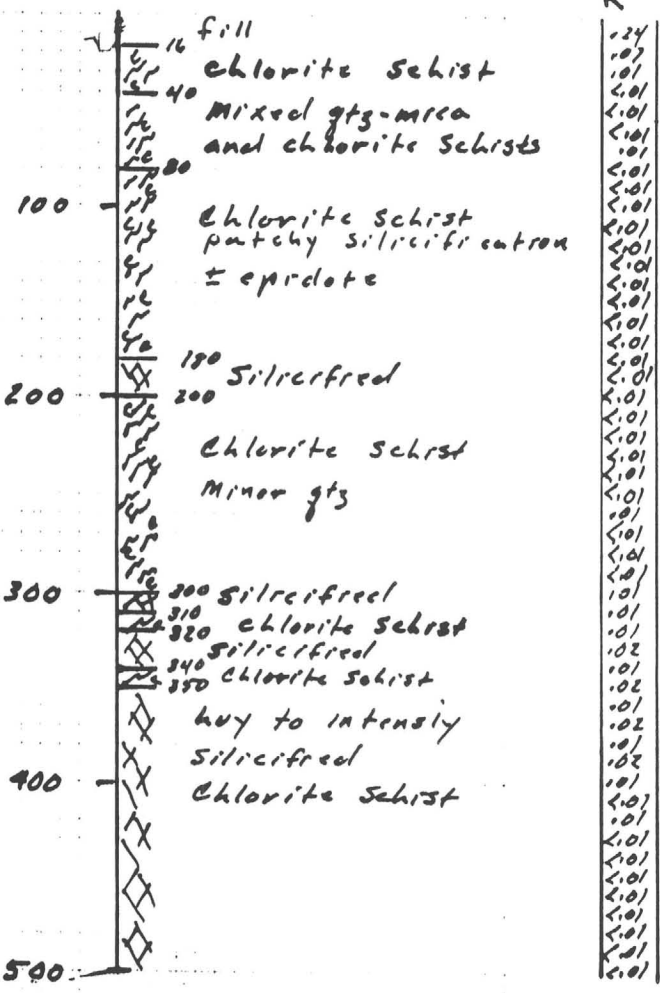 fill
16
Chlorite Schist
40
Mixed qtz-mica
and chlorite Schists
80
100
Chlorite Schist
patchy silicification
± epidote
180
Silicified
200
200
Chlorite Schist
Minor qtz
300
300 Silicified
310
Chlorite Schist
320
Silicified
340
Chlorite Schist
350
hvy to intensly
Silicified
400
Chlorite Schist
500
.24
.07
.01
<.01
<.01
<.01
.01
<.01
<.01
<.01
<.01
<.01
<.01
<.01
<.01
<.01
<.01
<.01
<.01
<.01
<.01
<.01
<.01
<.01
<.01
<.01
.01
<.01
<.01
<.01
.01
.01
.01
.02
.01
.02
.01
.02
.01
.02
.01
<.01
.01
<.01
<.01
<.01
<.01
<.01
<.01
<.01
<.01